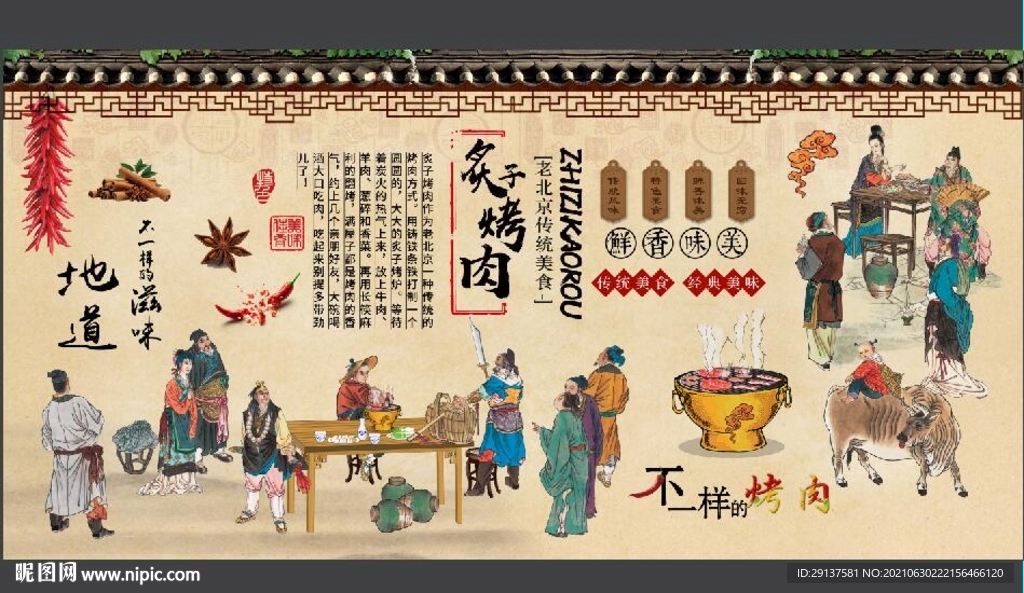 不一样的滋味
地道
美味
炙子烤肉作为老北京一种传统的
烤肉方式。用铸铁条铁打制一个
圆圆的，大大的炙子烤炉。等待
着炭火的热气上来，放上牛肉、
羊肉、葱碎和香菜。再用长筷麻
利的翻烤，满屋子都是烤肉的香
气，约上几个亲朋好友，大碗喝
酒大口吃肉，吃起来别提多带劲
儿了！
炙子烤肉
「老北京传统美食」
ZHIZIKAOROU
传统风味
特色美食
鲜香味美
传统美食 经典美味
不一样的烤肉
昵图网 www.nipic.com
ID:29137581 NO:20210630222156466120